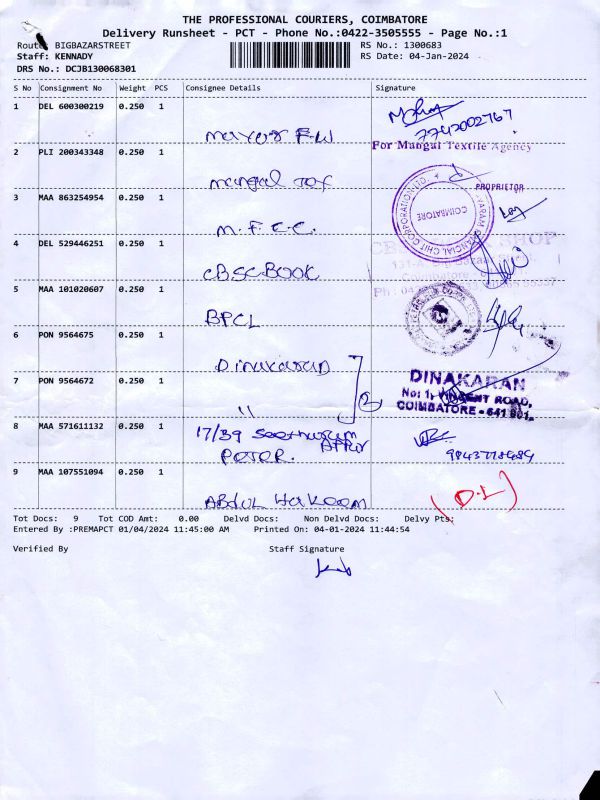 THE PROFESSIONAL COURIERS, COIMBATORE
Delivery Runsheet - PCT - Phone No.:0422-3505555 - Page No.:1
Route: BIGBAZARSTREET RS No.: 1300683
Staff: KENNADY RS Date: 04-Jan-2024
DRS No.: DCJB130068301
S No Consignment No Weight PCS Consignee Details Signature
1 DEL 600300219 0.250 1
7742002767
For Mangal Textile Agency
2 PLI 200343348 0.250 1
mangal Tex
PROPRIETOR
3 MAA 863254954 0.250 1
COIMBATORE
M.F.C.C.
4 DEL 529446251 0.250 1
CBSCBOOK
5 MAA 101020607 0.250 1
BPCL
6 PON 9564675 0.250 1
Dinakaran
7 PON 9564672 0.250 1
"
2
DINAKARAN
No: 1, VINCENT ROAD,
COIMBATORE - 641 001.
8 MAA 571611132 0.250 1
17/39 Seethuram
PETER.
9 MAA 107551094 0.250 1
ABDUL Hakeem
(D.L)
Tot Docs: 9 Tot COD Amt: 0.00 Delvd Docs: Non Delvd Docs: Delvy Pts:
Entered By :PREMAPCT 01/04/2024 11:45:00 AM Printed On: 04-01-2024 11:44:54
Verified By Staff Signature